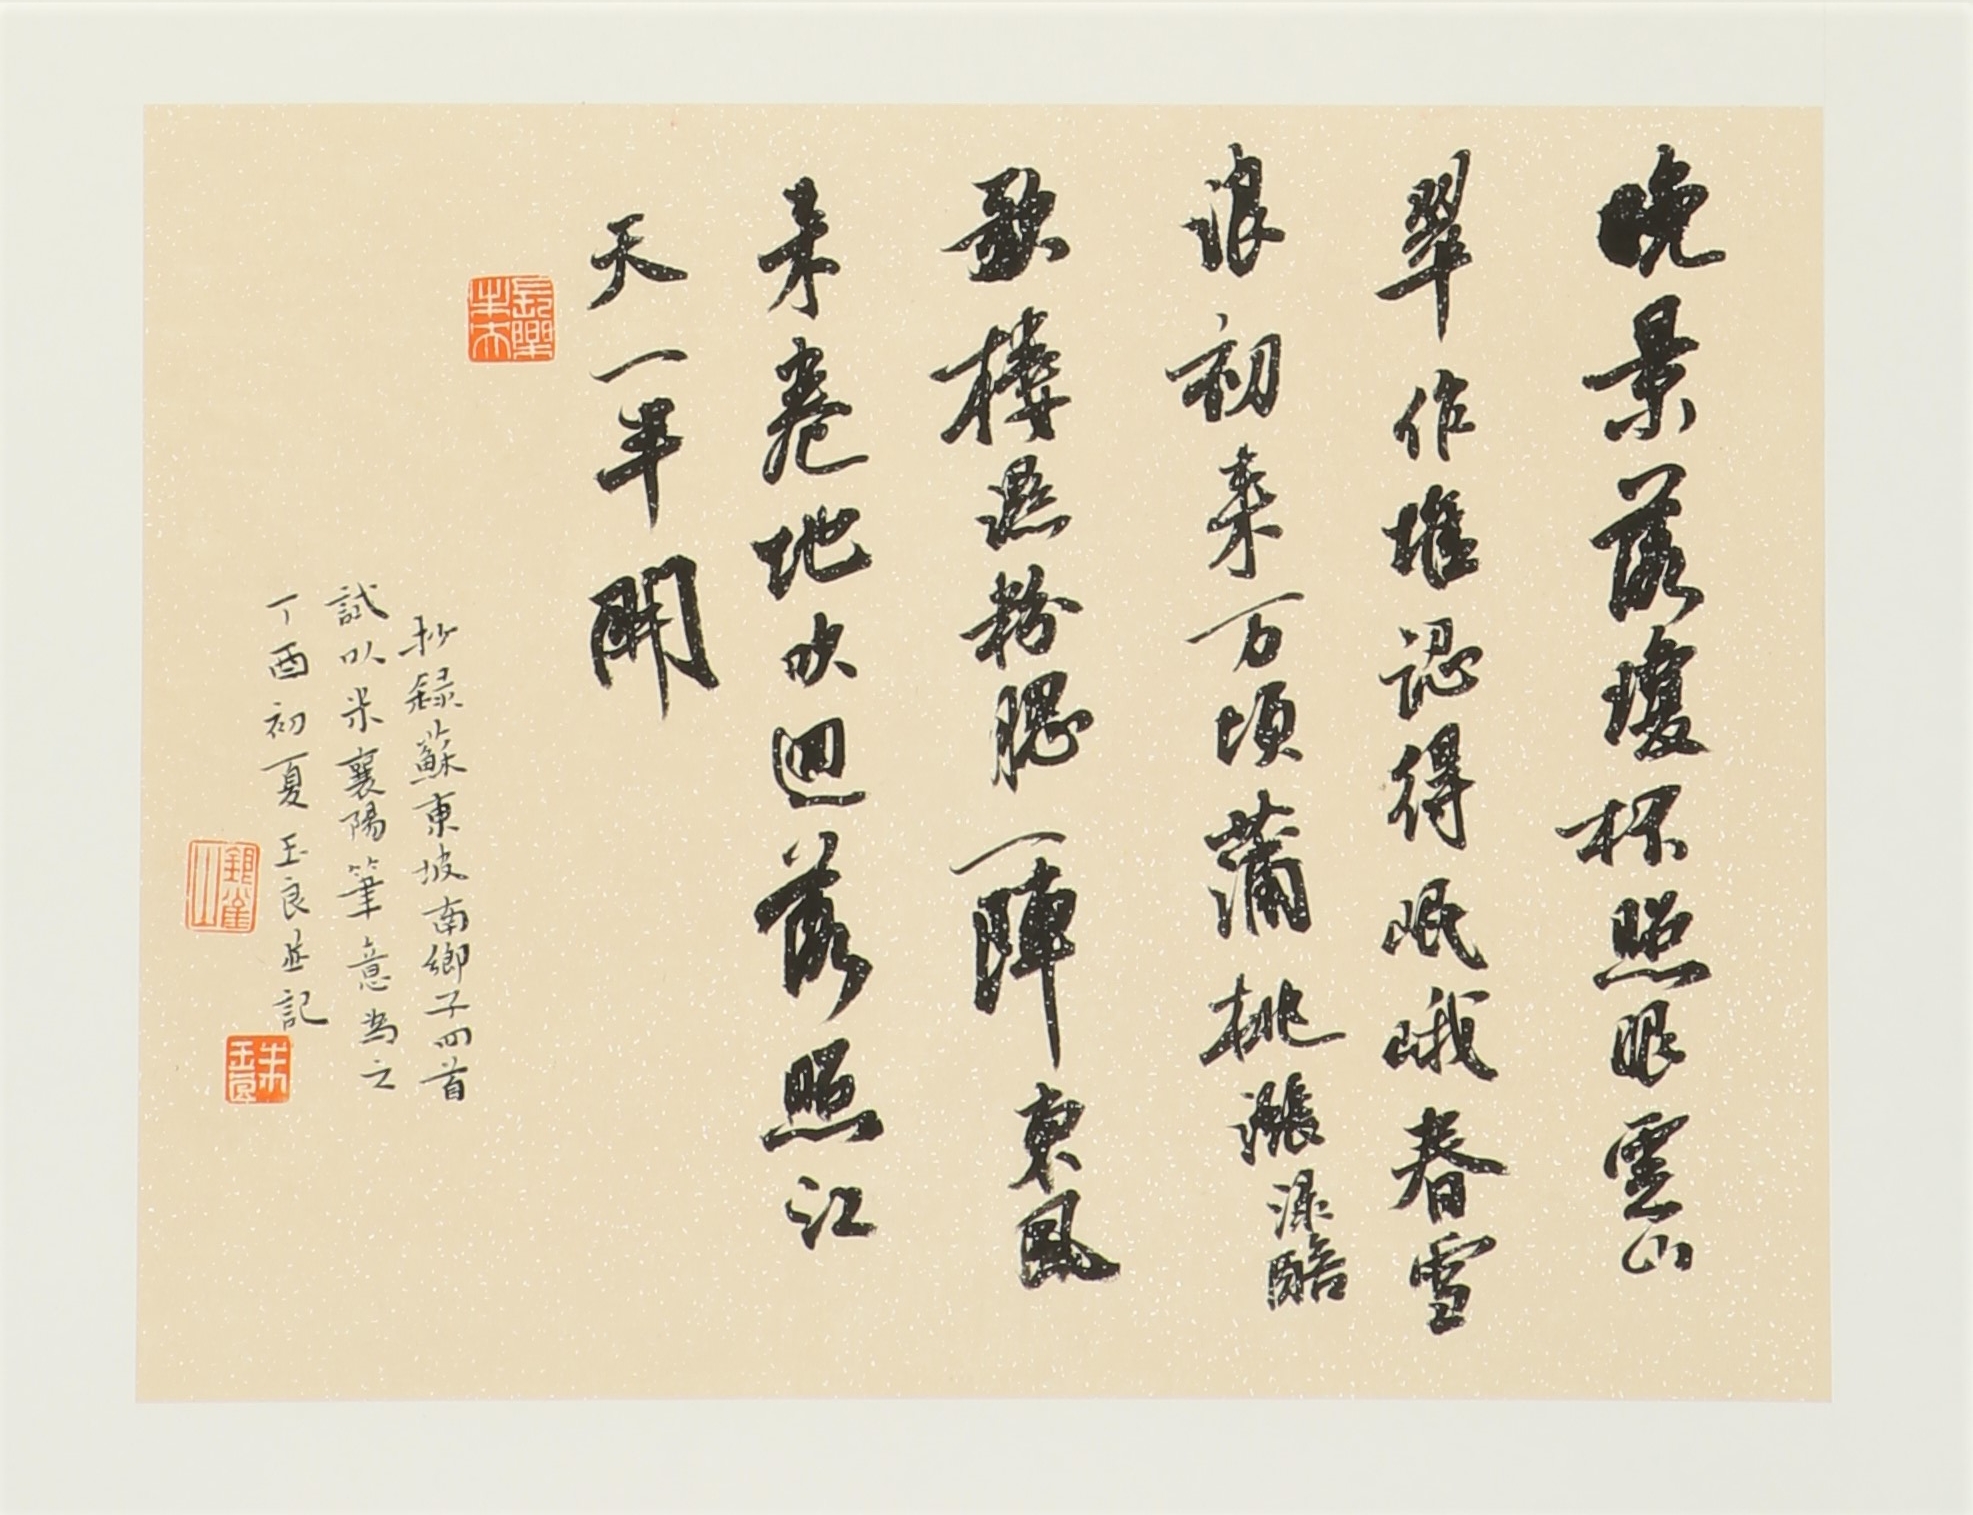 晚景落瓊杯照眼雲山
翠作堆認得岷峨春雪
浪初来万頃蒲桃漲渌醅
歌樓濕粉腮一陣東風
来卷地吹迴落照江
天一半開
長樂未央
抄録蘇東坡南鄉子四首
試以米襄陽筆意為之
丁酉初夏玉良並記
朱玉良